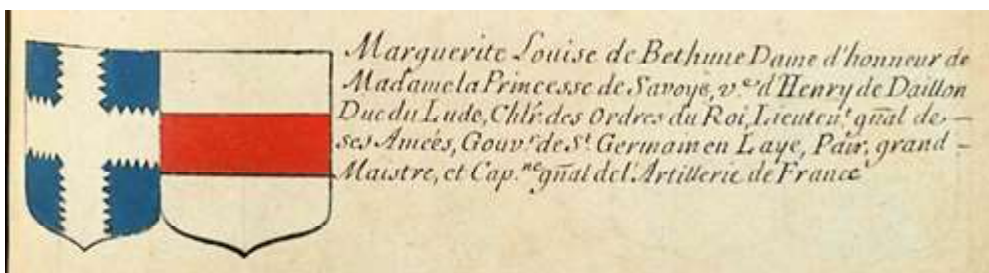 Marguerite Louise de Bethune Dame d'honneur de
Madame la Princesse de Savoye, v.e d'Henry de Daillon
Duc du Lude, Chlr. des Ordres du Roi, Lieuten.t gñal de
ses Amées, Gouv.r de S.t Germain en Laye, Pair, grand
Maistre, et Cap.ne gñal del'Artillerie de France